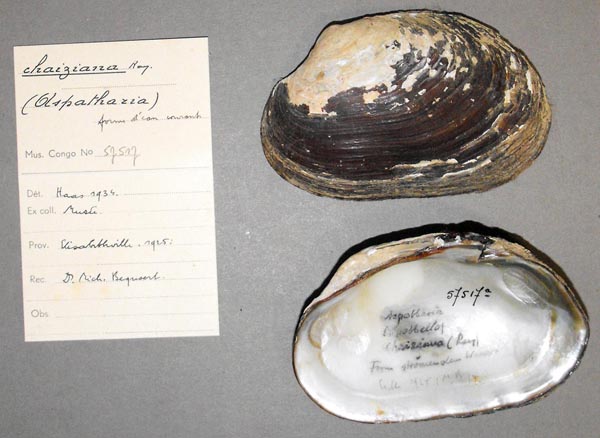 chaiziana Rang.
(Aspatharia)
forme d'eau courante
Mus. Congo No 57517
Dét. Haas 1934.
Ex coll. Musée.
Prov. Elisabethville. 1925.
Rec. D. Mich. Bequaert.
Obs.
57517a
Aspatharia
Chaiziana (Rang)
Form strömenden Wassers